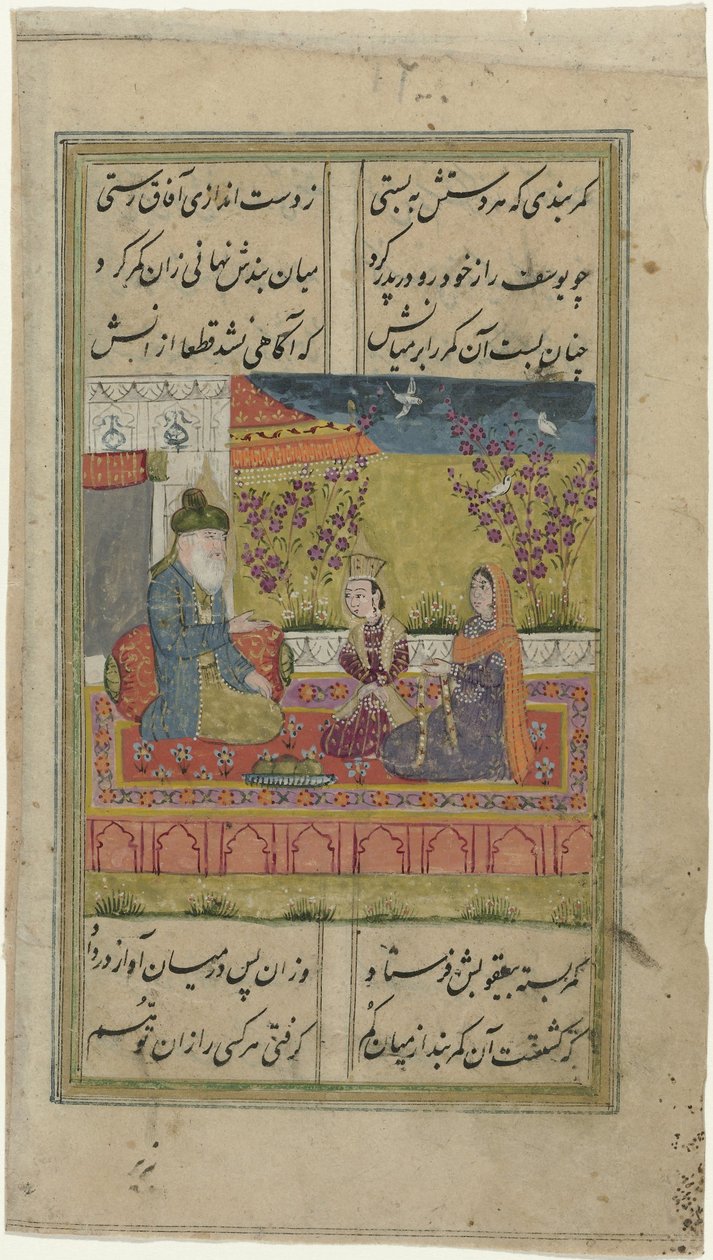 کمربندی که هر دستش به بستی
ز دست اندازی آفاق رستی
چو یوسف را ز خود رو در پدر کرد
میان بندش نهانی زان کمر کرد
چنان بست آن کمر را بر میانش
که آگاهی نشد قطعا از آنش
کمر بسته بیعقوبش فرستاد
وزان پس در میان آواز در داد
که گشتست آن کمربند از میان گم
گرفتی هر کسی را زان توهم